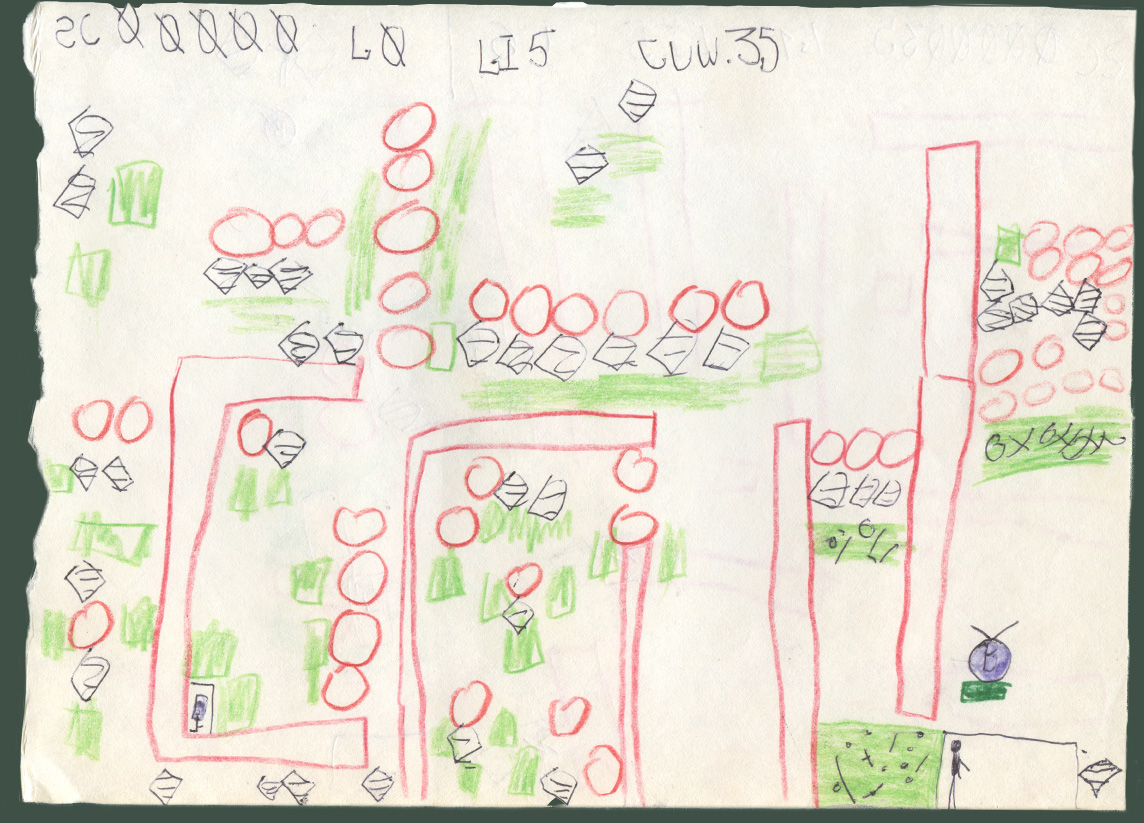 SC 00000 L0 LI5 CUW.35